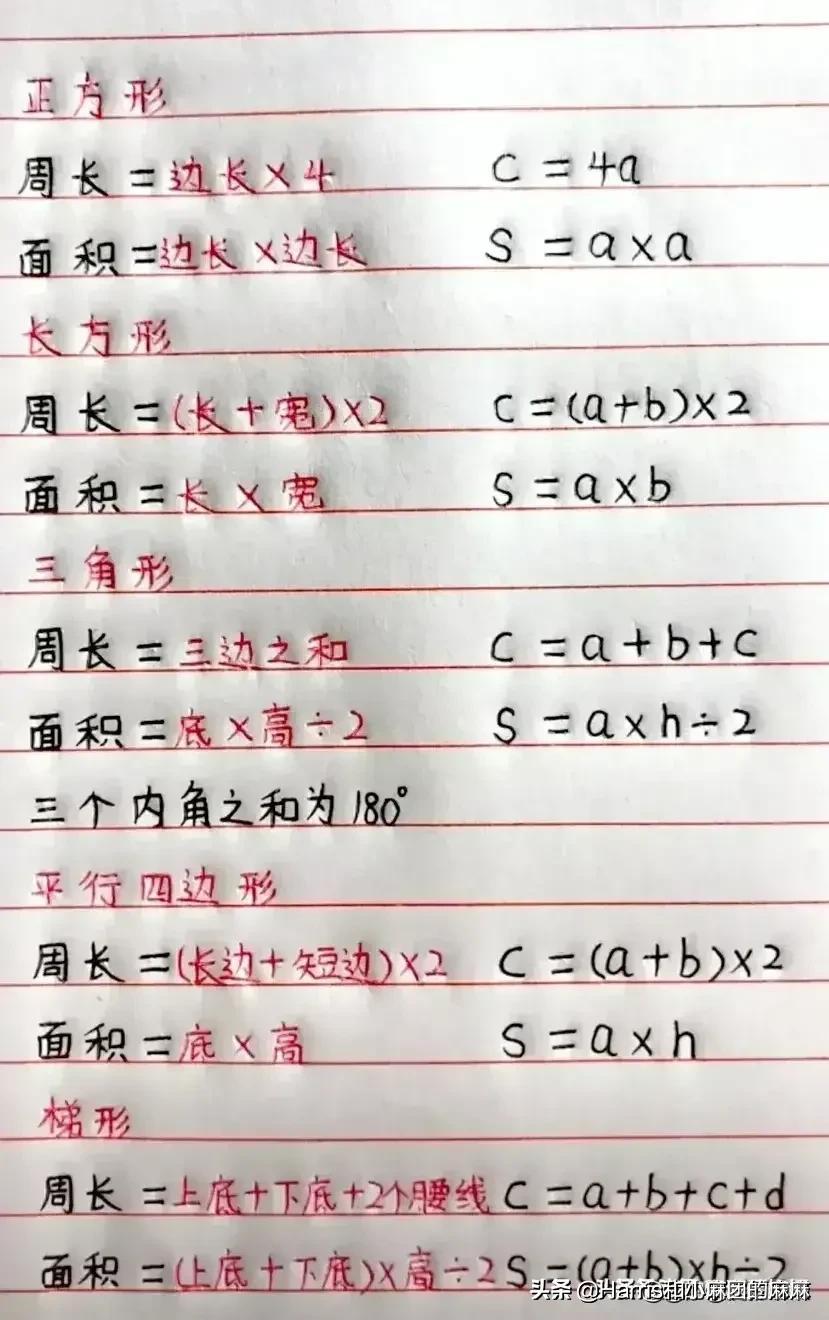 正方形
周长=边长×4 C=4a
面积=边长×边长 S=a×a
长方形
周长=(长+宽)×2 C=(a+b)×2
面积=长×宽 S=a×b
三角形
周长=三边之和 C=a+b+c
面积=底×高÷2 S=a×h÷2
三个内角之和为180°
平行四边形
周长=(长边+短边)×2 C=(a+b)×2
面积=底×高 S=a×h
梯形
周长=上底+下底+2个腰线 C=a+b+c+d
面积=(上底+下底)×高÷2 S=(a+b)×h÷2
头条 @Harris和小麻团的麻麻